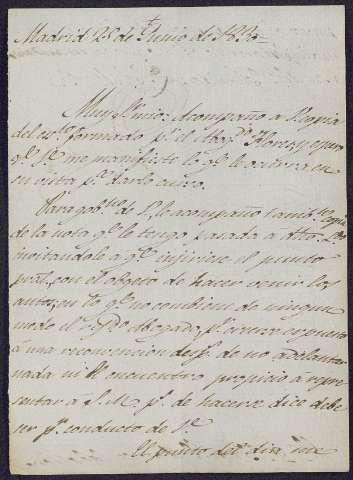 Madrid 25 de Junio de 1830=
Muy Sr. mio: Acompaño a V. copia
del escto. formado pr. el Abogdo. Florez y espero
qe. V. me manifieste lo qe. le ocurra en
su vista pa. darle curso.
Para gobno. de V. le acompaño tambn. copia
de la nota qe. le tengo pasada a dho. Sr.
incitandole a qe. insinue el punto
pral. con el objeto de hacer venir los
autos, en lo qe. no combiene de ningun
modo el abogado, pr. estar expuesto
á una reconvencion de no adelantar
nada ni le encuentro propicio a repre-
sentar a S.M. ps. de hacerse dice debe
ser pr. conducto de V.
El punto del dia me